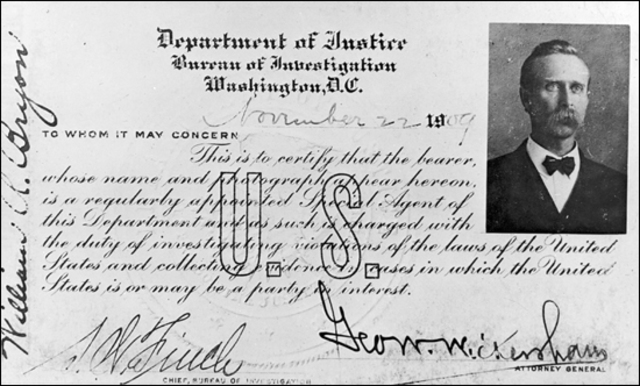 Department of Justice
Bureau of Investigation
Washington, D.C.
November 22 1909
TO WHOM IT MAY CONCERN
This is to certify that the bearer,
whose name and photograph appear hereon,
is a regularly appointed Special Agent of
this Department and as such is charged with
the duty of investigating violations of the laws of the United
States and collecting evidence in cases in which the United
States is or may be a party in interest.
U.S.
William A. Bryon
S W Finch
CHIEF, BUREAU OF INVESTIGATION
Geo. W. Wickersham
ATTORNEY GENERAL